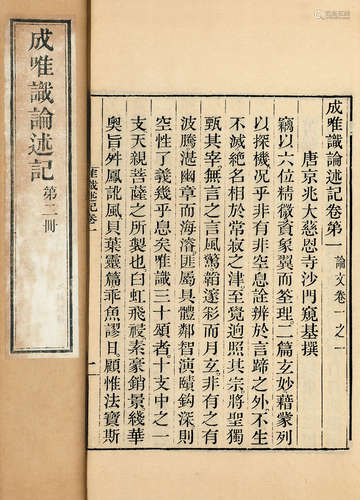 成唯識論述記 第二冊
成唯識論述記卷第一 論文卷一之一
唐京兆大慈恩寺沙門窺基撰
竊以六位精微資象翼而筌理二篇玄妙藉蒙列
以探機况乎非有非空息詮辨於言蹄之外不生
不滅絶名相於常寂之津至覺逈照其宗將聖獨
甄其宰無言之言風驚韜邃彩而月玄非有之有
波騰湛幽章而海濬匪屬具體鄰智演賾鈎深則
空性了義幾乎息矣唯識三十頌者十支中之一
支天親菩薩之所製也白虹飛祲素豪銷景綫華
奧旨舛鳳訛風貝葉靈篇乖魚謬日顧惟法寶斯
唯識述記卷一
一